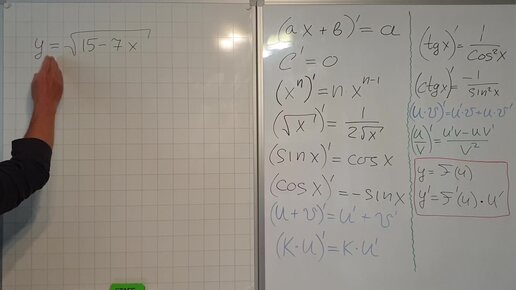 y = √(15 - 7x)
(ax + b)' = a
C' = 0
(xⁿ)' = n · xⁿ⁻¹
(√x)' = 1/(2√x)
(sin x)' = cos x
(cos x)' = - sin x
(u + v)' = u' + v'
(K · u)' = K · u'
(tg x)' = 1/cos²x
(ctg x)' = -1/sin²x
(u · v)' = u'v + uv'
(u/v)' = (u'v - uv')/v²
y = F(u)
y' = F'(u) · u'